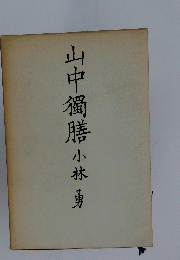 山中獨膳 小林 勇